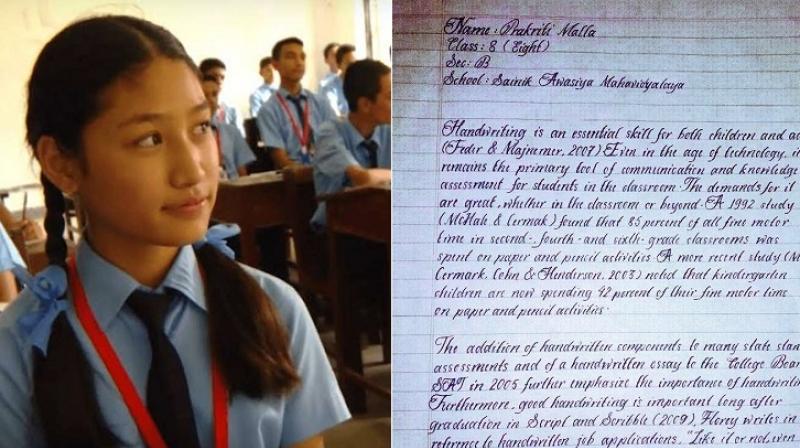 Name : Prakriti Malla
Class : 8 (Eight)
Sec : B
School : Sainik Awasiya Mahavidyalaya
Handwriting is an essential skill for both children and
(Feder & Majnemer, 2007) Even in the age of technology,
remains the primary tool of communication and knowledge
assessment for students in the classroom. The demands for it
are great, whether in the classroom or beyond. A 1992 study
(McHale & Cermak) found that 85 percent of all fine motor
time in second-, fourth- and sixth-grade classrooms was
spent on paper and pencil activities. A more recent study
Cermark, Cehn & Henderson, 2003) noted that kindergarten
children are now spending 42 percent of their fine motor time
on paper and pencil activities.
The addition of handwritten components to many state
assessments and of a handwritten essay to the College
SAT in 2005 further emphasize the importance of
Furthermore, good handwriting is important long after
graduation in Script and Scribble (2009), Florey writes in
reference to handwritten job applications, "Like it or not, even